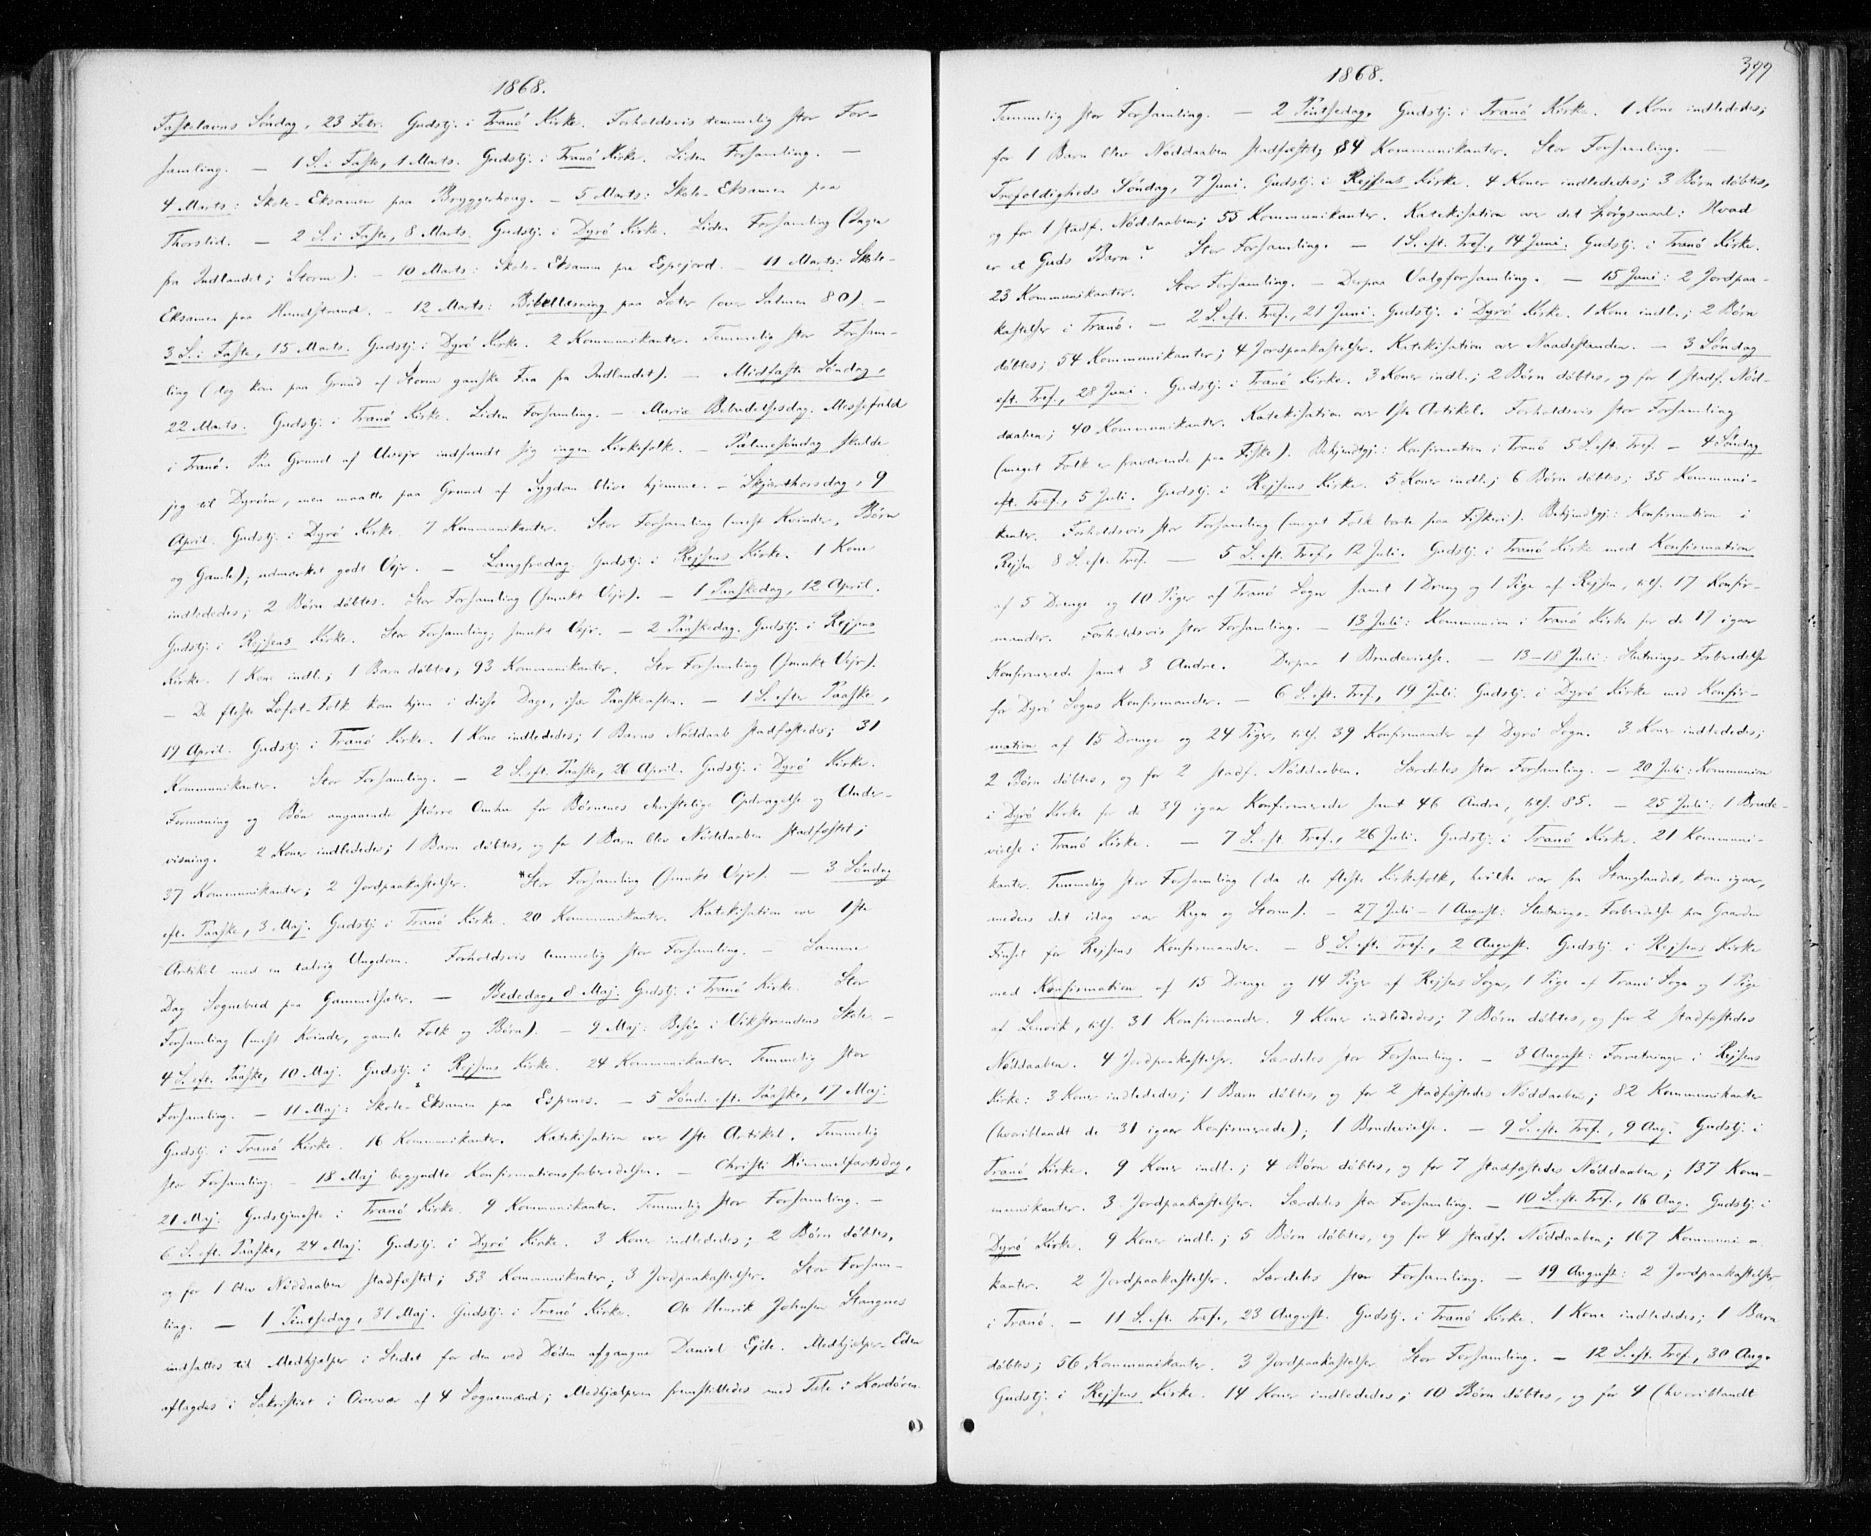 1868.
Fastelavns Söndag, 23 Febr. Gudstj. i Tranö Kirke. Forholdsvis temmelig stor For-
samling. — 1 S. i Faste, 1 Marts. Gudstj. i Tranö Kirke. Liden Forsamling. —
4 Marts: Skole-Eksamen paa Bryggerhaug. — 5 Marts: Skole-Eksamen paa
Thorslid. — 2 S. i Faste, 8 Marts. Gudstj. i Dyrö Kirke. Liden Forsamling (Ingen
fra Indlandet; Storm). — 10 Marts: Skole-Eksamen paa Espejord. — 11 Marts: Skole-
Eksamen paa Hundstrand. — 12 Marts: Bibellæsning paa Sæter (over Salmen 80). —
3 S. i Faste, 15 Marts. Gudstj. i Dyrö Kirke. 2 Kommunikanter. Temmelig stor Forsam-
ling (dog kom paa Grund af Storm ganske Faa fra Indlandet). — Midfaste Söndag,
22 Marts. Gudstj. i Tranö Kirke. Liden Forsamling. — Mariæ Bebudelsesdag. Messefald
i Tranö. Paa Grund af Uvejr indfandt sig ingen Kirkefolk. — Palmesöndag skulde
jeg til Dyröen, men maatte paa Grund af Sygdom blive hjemme. — Skjærthorsdag, 9
April. Gudstj. i Dyrö Kirke. 7 Kommunikanter. Stor Forsamling (mest Kvinder, Börn
og Gamle); udmærket godt Vejr. — Langfredag. Gudstj. i Rejsens Kirke. 1 Kone
indlededes; 2 Börn döbtes. Stor Forsamling (smukt Vejr). — 1 Paaskedag, 12 April.
Gudstj. i Rejsens Kirke. Stor Forsamling; smukt Vejr. — 2 Paaskedag. Gudstj. i Rejsens
Kirke. 1 Kone indl.; 1 Barn döbtes; 93 Kommunikanter. Stor Forsamling (smukt Vejr).
— De fleste Lofot-Folk kom hjem i disse Dage, især Paaskeaften. — 1 S. efter Paaske,
19 April. Gudstj. i Tranö Kirke. 1 Kone indlededes; 1 Barns Nöddaab stadfæstedes; 31
Kommunikanter. Stor Forsamling. — 2 S. eft. Paaske, 26 April. Gudstj. i Dyrö Kirke.
Formaning og Bön angaaende större Omhu for Börnenes christelige Opdragelse og Under-
visning. 2 Koner indlededes; 1 Barn döbtes, og for 1 Barn blev Nöddaaben stadfæstet;
37 Kommunikanter; 2 Jordpaakastelser. Stor Forsamling (smukt Vejr). — 3 Söndag
eft. Paaske, 3 Maj. Gudstj. i Tranö Kirke. 20 Kommunikanter. Katekisation over 1ste
Artikel med en talrig Ungdom. Forholdsvis temmelig stor Forsamling. — Samme
Dag Sognebud paa Gammelsæter. — Bededag, 8 Maj. Gudstj. i Tranö Kirke. Stor
Forsamling (mest Kvinder, gamle Folk og Börn). — 9 Maj: Besög i Vikstrandens Skole. —
4 S. eft. Paaske, 10 Maj. Gudstj. i Rejsens Kirke. 24 Kommunikanter. Temmelig stor
Forsamling. — 11 Maj: Skole-Eksamen paa Espenes. — 5 Sönd. eft. Paaske, 17 Maj.
Gudstj. i Tranö Kirke. 16 Kommunikanter. Katekisation over 1ste Artikel. Temmelig
stor Forsamling. — 18 Maj begyndte Konfirmationsforberedelsen. — Christi Himmelfartsdag,
21 Maj. Gudstjeneste i Tranö Kirke. 9 Kommunikanter. Temmelig stor Forsamling. —
6 S. eft. Paaske, 24 Maj. Gudstj. i Dyrö Kirke. 3 Koner indlededes; 2 Börn döbtes,
og for 1 blev Nöddaaben stadfæstet; 53 Kommunikanter; 3 Jordpaakastelser. Stor Forsam-
ling. — 1 Pintsedag, 31 Maj. Gudstj. i Tranö Kirke. Ole Henrik Johnsen Stangnes
indsattes til Medhjælper i Stedet for den ved Döden afgangne Daniel Ejde. Medhjælper-Eden
aflagdes i Sakristiet i Overvær af 4 Sognemænd; Medhjælperen fremstilledes med Tale i Kordören.
1868.
399
Temmelig stor Forsamling. — 2 Pintsedag. Gudstj. i Tranö Kirke. 1 Kone indlededes;
for 1 Barn blev Nöddaaben stadfæstet; 84 Kommunikanter. Stor Forsamling. —
Trefoldigheds Söndag, 7 Juni. Gudstj. i Rejsens Kirke. 4 Koner indlededes; 3 Börn döbtes,
og for 1 stadf. Nöddaaben; 55 Kommunikanter. Katekisation over det Spörgsmaal: Hvad
er et Guds Barn? Stor Forsamling. — 1 S. eft. Tref., 14 Juni. Gudstj. i Tranö Kirke.
23 Kommunikanter. Stor Forsamling. — Derpaa Valgforsamling. — 15 Juni: 2 Jordpaa-
kastelser i Tranö. — 2 S. eft. Tref., 21 Juni. Gudstj. i Dyrö Kirke. 1 Kone indl.; 2 Börn
döbtes; 54 Kommunikanter; 4 Jordpaakastelser. Katekisation over Naadestanden. — 3 Söndag
eft. Tref., 28 Juni. Gudstj. i Tranö Kirke. 3 Koner indl.; 2 Börn döbtes, og for 1 stadf. Nöd-
daaben; 40 Kommunikanter. Katekisation over 1ste Artikel. Forholdsvis stor Forsamling
(meget Folk er fraværende paa Fiske). Bekjendtgj.: Konfirmation i Tranö 5 S. eft. Tref. — 4 Söndag
eft. Tref., 5 Juli. Gudstj. i Rejsens Kirke. 5 Koner indl.; 6 Börn döbtes; 35 Kommuni-
kanter. Forholdsvis stor Forsamling (meget Folk borte paa Fiskeri). Bekjendtgj.: Konfirmation i
Rejsen 8 S. eft. Tref. — 5 S. eft. Tref., 12 Juli. Gudstj. i Tranö Kirke med Konfirmation
af 5 Drenge og 10 Piger af Tranö Sogn samt 1 Dreng og 1 Pige af Rejsen, tils. 17 Konfir-
mander. Forholdsvis stor Forsamling. — 13 Juli: Kommunion i Tranö Kirke for de 17 igaar
Konfirmerede samt 3 Andre. Derpaa 1 Brudevielse. — 13–18 Juli: Slutnings-Forberedelse
for Dyrö Sogns Konfirmander. — 6 S. eft. Tref., 19 Juli. Gudstj. i Dyrö Kirke med Konfir-
mation af 15 Drenge og 24 Piger, tils. 39 Konfirmander af Dyrö Sogn. 3 Koner indlededes;
2 Börn döbtes, og for 2 stadf. Nöddaaben. Særdeles stor Forsamling. — 20 Juli: Kommunion
i Dyrö Kirke for de 39 igaar Konfirmerede samt 46 Andre, tils. 85. — 25 Juli: 1 Brude-
vielse i Tranö Kirke. — 7 S. eft. Tref., 26 Juli. Gudstj. i Tranö Kirke. 21 Kommuni-
kanter. Temmelig stor Forsamling (da de fleste Kirkefolk, hvilke var fra Stanglandet, kom igaar,
medens det idag var Regn og Storm). — 27 Juli – 1 August: Slutnings-Forberedelse paa Gaarden
for Rejsens Konfirmander. — 8 S. eft. Tref., 2 August. Gudstj. i Rejsens Kirke
med Konfirmation af 15 Drenge og 14 Piger af Rejsens Sogn, 1 Pige af Tranö Sogn og 1 Pige
af Lenvik, tils. 31 Konfirmander. 9 Koner indlededes; 7 Börn döbtes, og for 2 stadfæstedes
Nöddaaben. 4 Jordpaakastelser. Særdeles stor Forsamling. — 3 August: Forretninger i Rejsens
Kirke: 3 Koner indlededes; 1 Barn döbtes, og for 2 stadfæstedes Nöddaaben; 82 Kommunikanter
(hvoriblandt de 31 igaar Konfirmerede); 1 Brudevielse. — 9 S. eft. Tref., 9 Aug. Gudstj. i
Tranö Kirke. 9 Koner indl.; 4 Börn döbtes, og for 7 stadfæstedes Nöddaaben; 137 Kom-
munikanter. 3 Jordpaakastelser. Særdeles stor Forsamling. — 10 S. eft. Tref., 16 Aug. Gudstj. i
Dyrö Kirke. 9 Koner indl.; 5 Börn döbtes, og for 4 stadf. Nöddaaben; 167 Kommuni-
kanter. 2 Jordpaakastelser. Særdeles stor Forsamling. — 19 August: 2 Jordpaakastelser
i Tranö. — 11 S. eft. Tref., 23 August. Gudstj. i Tranö Kirke. 1 Kone indlededes; 1 Barn
döbtes; 56 Kommunikanter. 3 Jordpaakastelser. Stor Forsamling. — 12 S. eft. Tref., 30 Aug.
Gudstj. i Rejsens Kirke. 14 Koner indlededes; 10 Börn döbtes, og for 4 (hvoriblandt